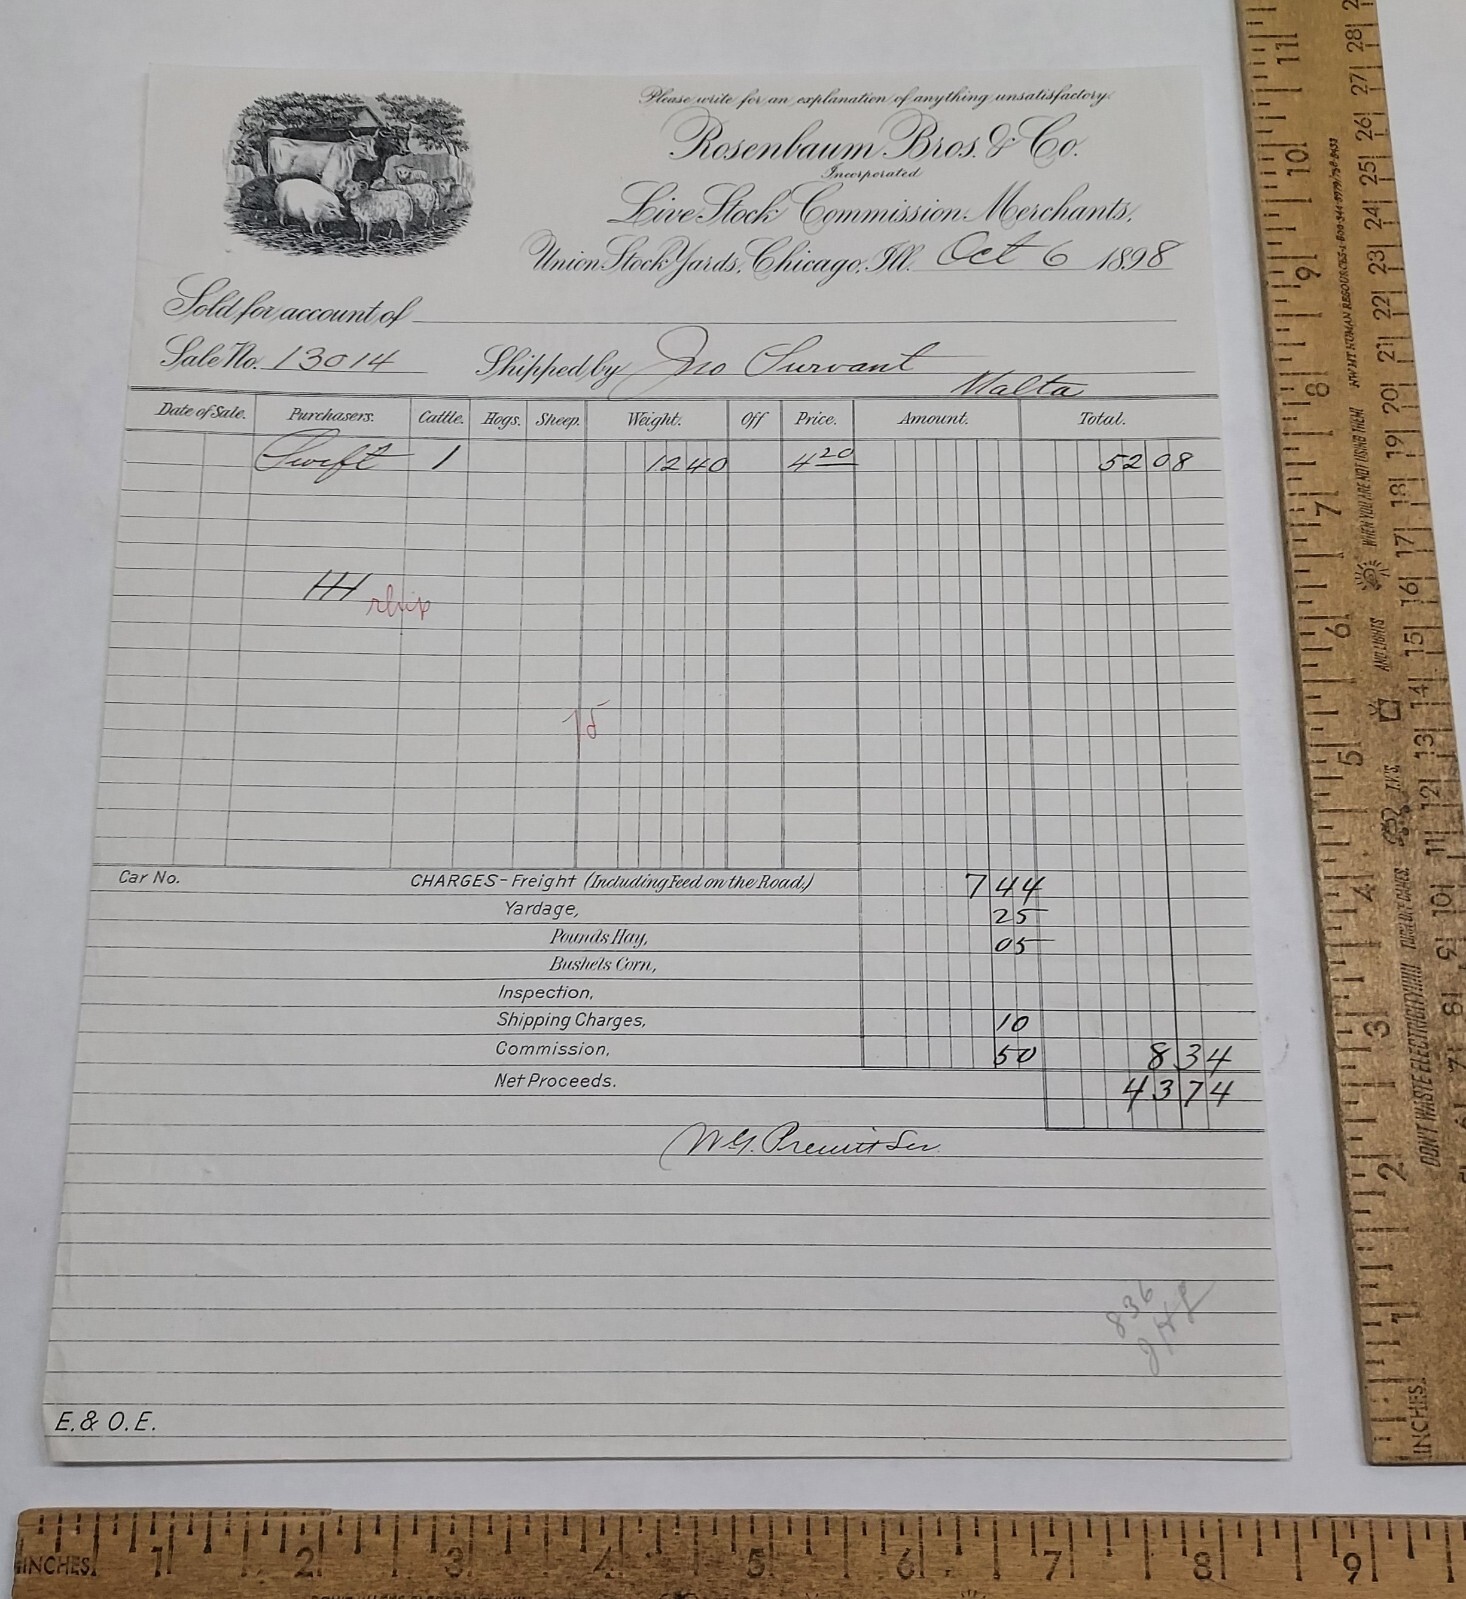 Please write for an explanation of anything unsatisfactory.
Rosenbaum Bros. & Co.
Incorporated
Live Stock Commission Merchants,
Union Stock Yards, Chicago, Ill. Oct 6 1898
Sold for account of
Sale No. 13014 Shipped by Jno Survant
Malta
Date of Sale. Purchasers. Cattle. Hogs. Sheep. Weight. Off Price. Amount. Total.
Swift 1 1240 4 20 52 08
15
Car No. CHARGES - Freight (Including Feed on the Road,) 7 44
Yardage, 25
Pounds Hay, 05
Bushels Corn,
Inspection,
Shipping Charges, 10
Commission, 50 8 34
Net Proceeds. 43 74
W.G. Prewitt Ser
836
E. & O. E.
INCHES 1 2 3 4 5 6 7 8 9
INCHES 1 2 3 4 5 6 7 8 9 10 11
DON'T WASTE ELECTRICITY!!!!! TURN OFF GAMES, T.V.'S, AND LIGHTS WHEN YOU ARE NOT USING THEM!